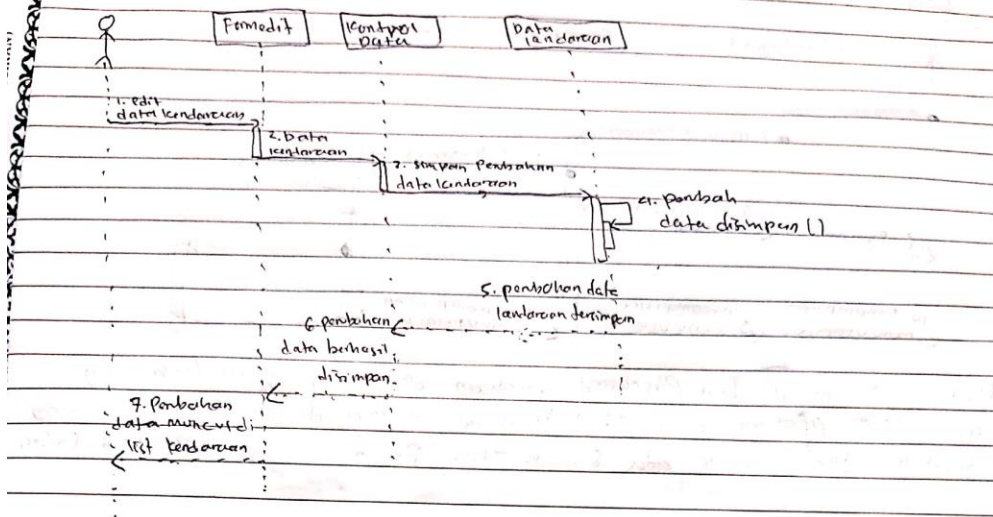 Formedit
Kontrol
Data
Data
kendaraan
1. edit
data kendaraan
2. Data
kendaraan
3. simpan Perubahan
data kendaraan
4. perubah
data disimpan ()
5. perubahan data
kendaraan tersimpan
6. perubahan
data berhasil
disimpan
7. Perubahan
data muncul di
list kendaraan